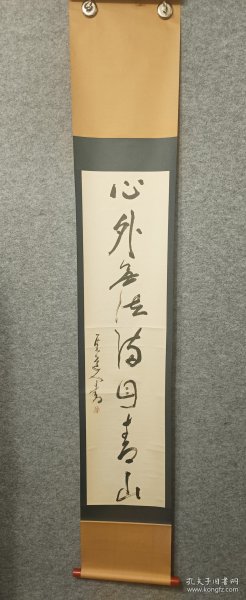 心外無法満目青山
孔夫子旧书网
www.kongfz.com